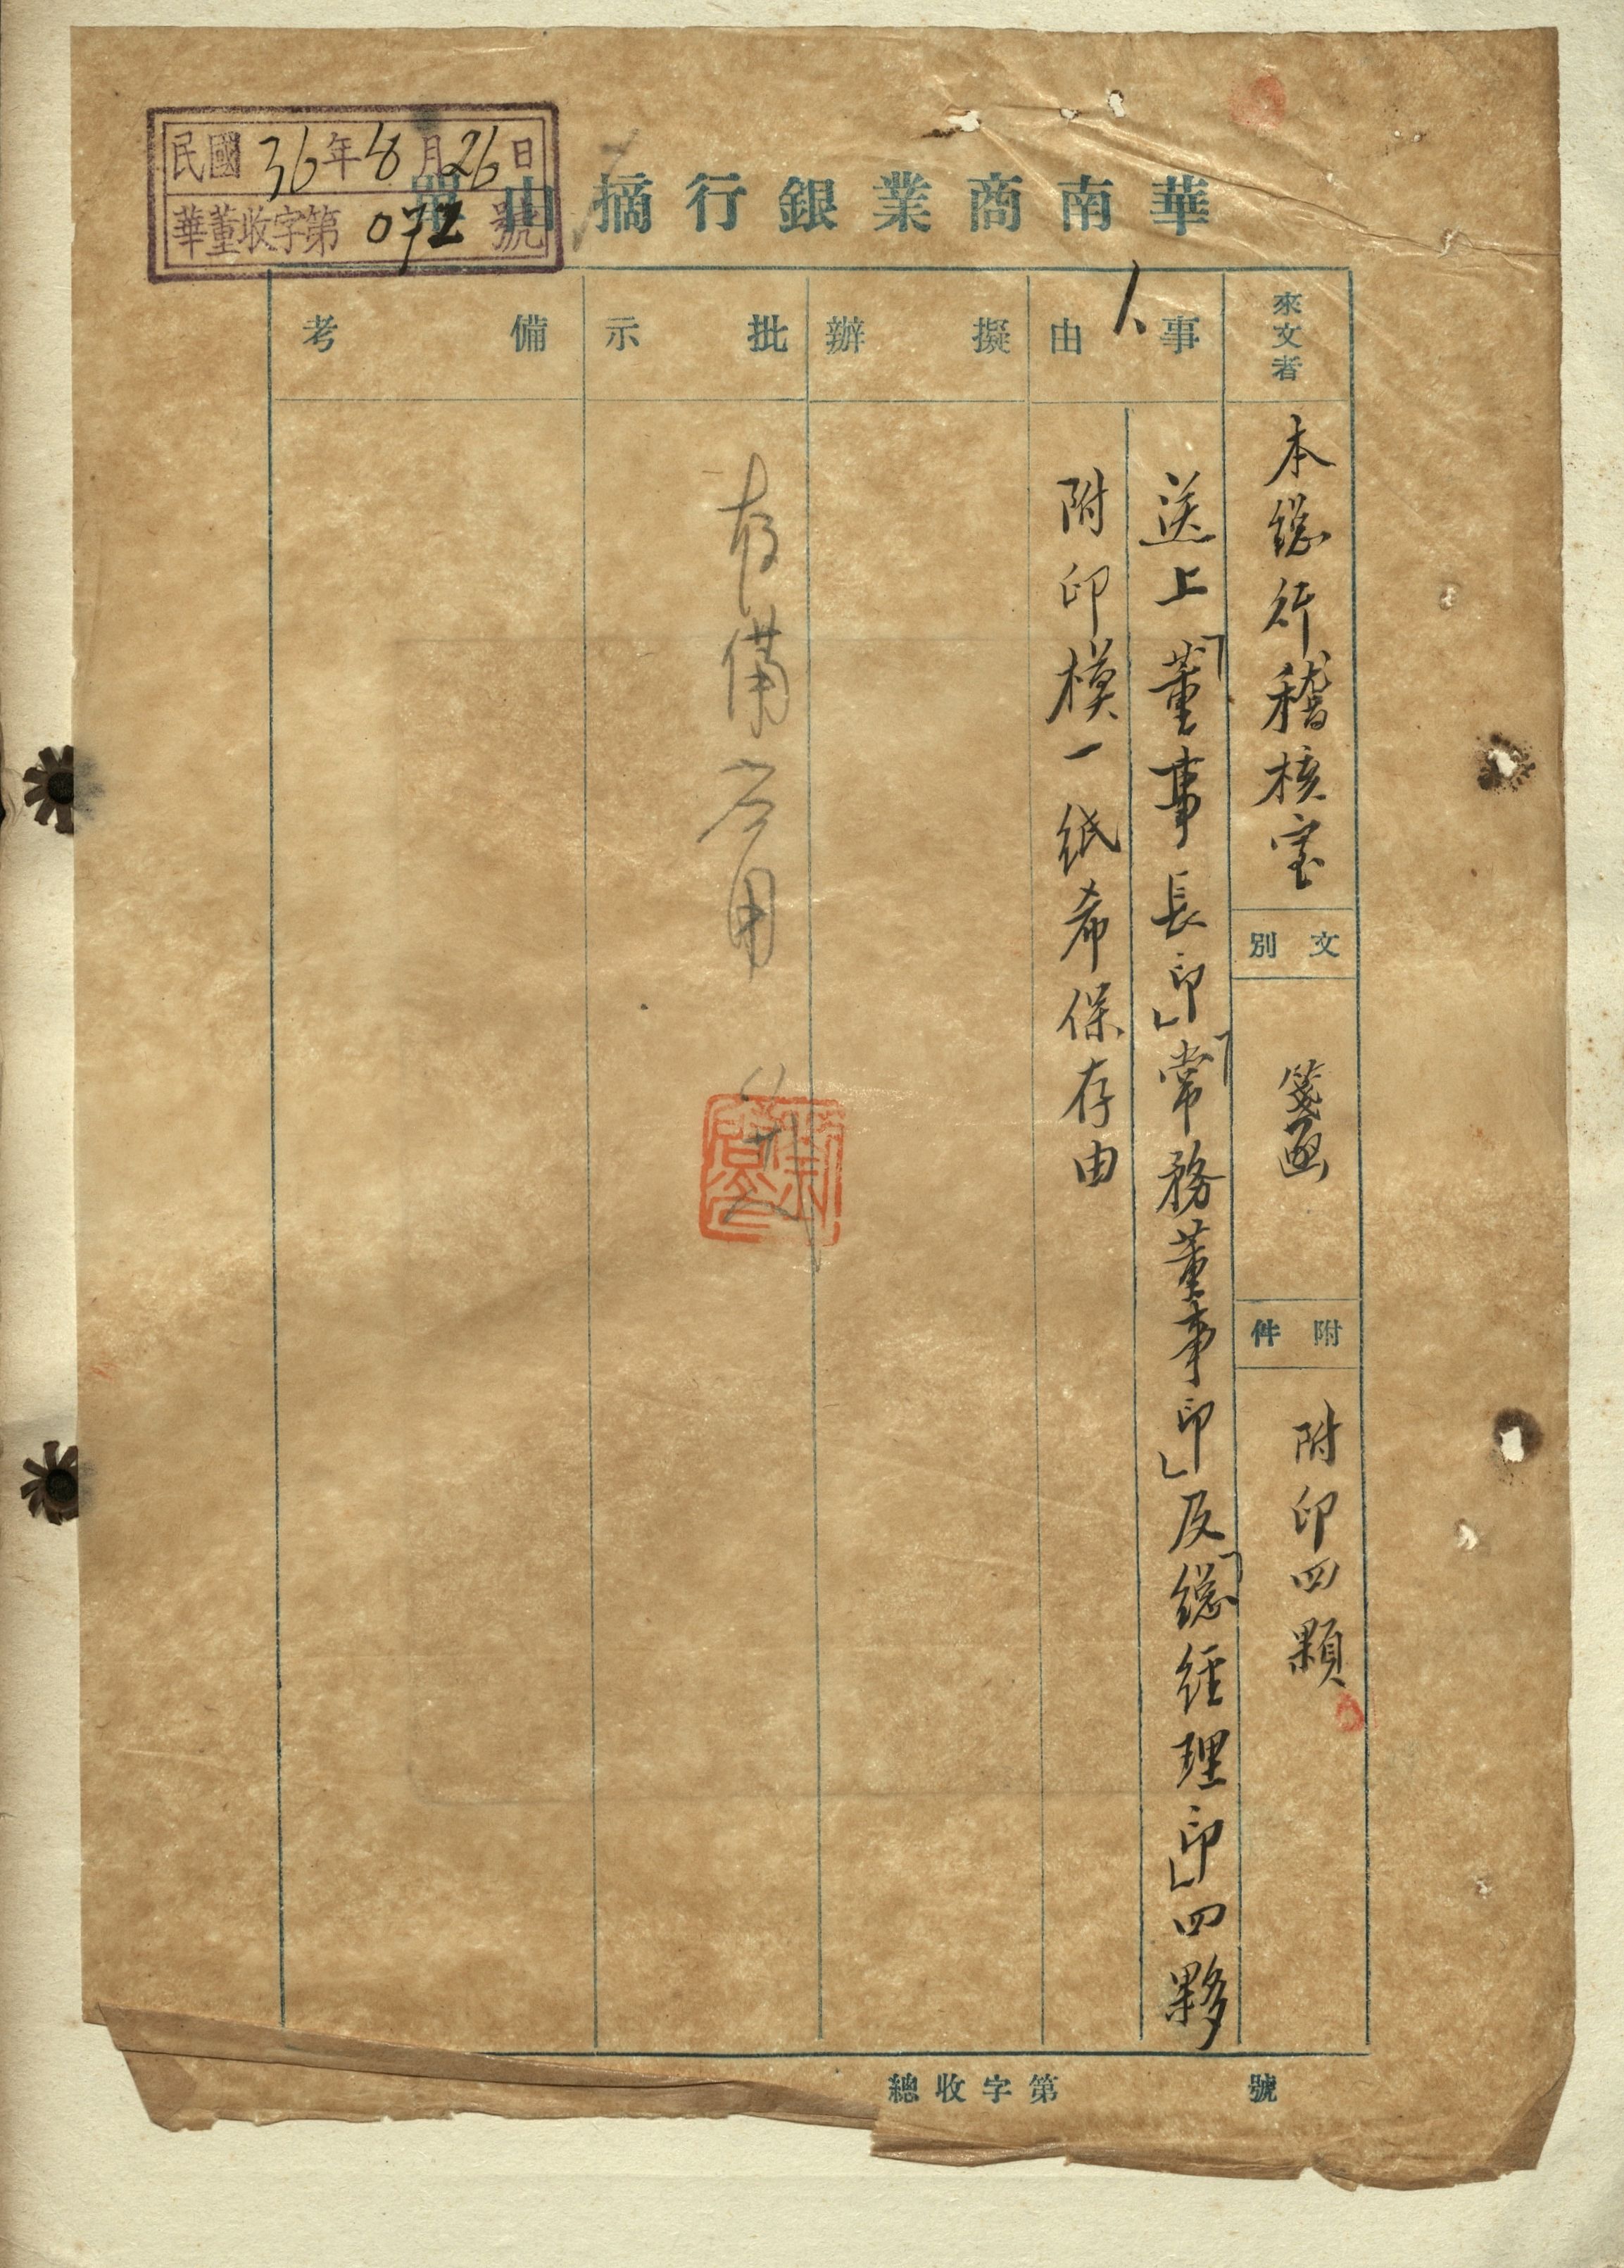 民國36年8月26日
華董收字第072號
華南商業銀行摘由單
來文者
本總行稽核室
文別
箋函
附件
附印四顆
事由
人
送上「董事長印」「常務董事印」及「總經理印」四夥
附印模一紙希保存由
擬辦
批示
存備应用
備考
總收字第 號